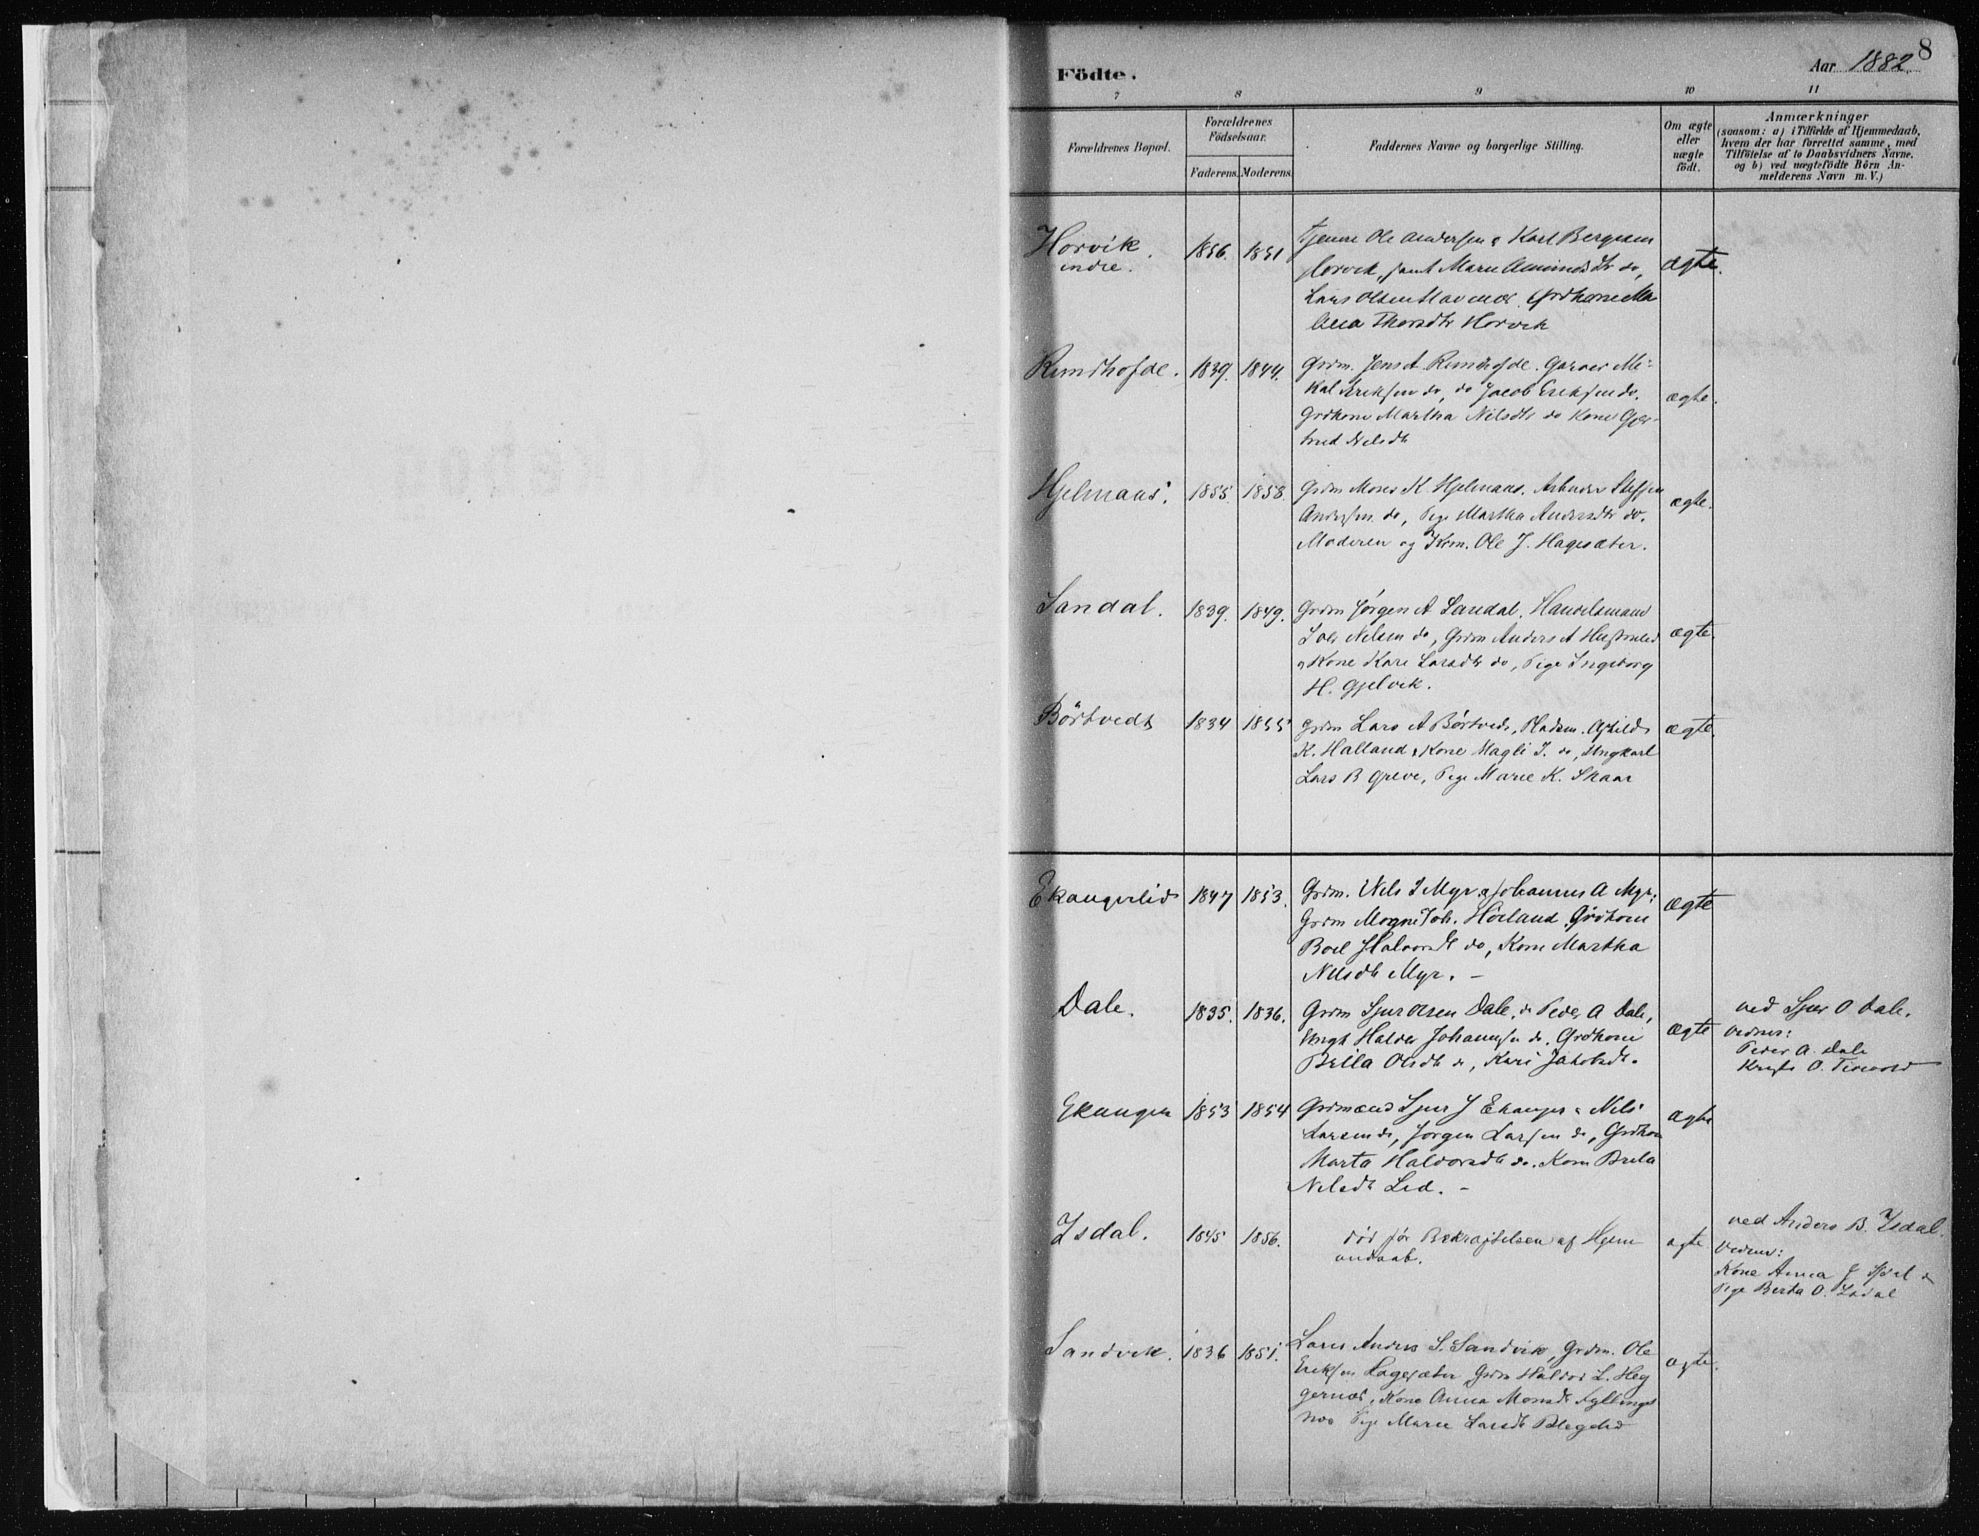 8
Födte.
Aar 1882.
7 8 9 10 11
Forældrenes Bopæl.
Forældrenes Födselsaar.
Faderens. Moderens.
Faddernes Navne og borgerlige Stilling.
Om ægte eller uægte födt.
Anmærkninger
(saasom: a) i Tilfælde af Hjemmedaab,
hvem der har forrettet samme, med
Tilföielse af to Daabsvidners Navne,
og b) ved uægtefödte Börn An-
melderens Navn m. V.)
Horvik indre. 1856. 1851 ægte.
Ole Andersen & Karl Bergesen
Horvik, samt Marie do,
Lars Olsen Grdkone Ma
Thorsdtr Horvik
Rundhofde. 1839. 1844. ægte.
Grdm. Jens A Rundhofde. Garver Mi-
kal Eriksen do, do Jacob Eriksen do.
Grdkone Martha Nilsdtr do Kone Gjer-
trud Nilsdtr
Hjelmaas. 1855 1858. ægte.
Grdm Mons K Hjelmaas. Arbeider Steffen
Andersen do, Pige Martha Andersdtr do.
Moderen og Grdm. Ole J. Hagesæter.
Sandal. 1839. 1849. ægte.
Grdm Jørgen A Sandal. Handelsmand
Iver Nilsen do, Grdm Anders A
& Kone Kari Larsdtr do, Pige Ingeborg
H. Gjelvik.
Börtvedt 1834 1855 ægte.
Grdm Lars A Börtvedt, Pladsm.
K. Halland & Kone Magli I. do, Ungkarl
Lars B Greve, Pige Marie K. Skaar
Ekangerlid 1847 1853. ægte
Grdm. Nils I Myr & Johannes A Myr.
Grdm Mogne Joh. Hörland Grdkone
Boel Halvorsdt do, Kone Martha
Nilsdtr Myr. –
Dale. 1835. 1836. ægte
Grdm Sjur Olsen Dale, do Peder A Dale,
Ungk Haldor Johannsen do. Grdkone
Brita Olsdtr do, Kari Jakobsdtr.
ved Sjur O Dale.
Vidner:
Peder A. Dale
O.
Ekanger 1853 1854 ægte
Grdmand Sjur J Ekanger & Nils
Larsen do, Jørgen Larsen do, Grdkone
Marta Haldorsdtr do. Kone Brita
Nilsdtr Lid. –
Isdal. 1845 1856. ægte
död för Bekræftelsen af Hjem
medaab.
ved Anders B. Isdal.
Vidner:
Kone Anna J Isdal &
Pige Berta O. Isdal
Sandvik. 1836 1851. ægte.
Anders S. Sandvik, Grdm. Ole
Eriksen Hagesæter Grdm Haldor L. Heg
gernæs, Kone Anna Monsdtr Fyllings
næs Pige Marie Larsdtr